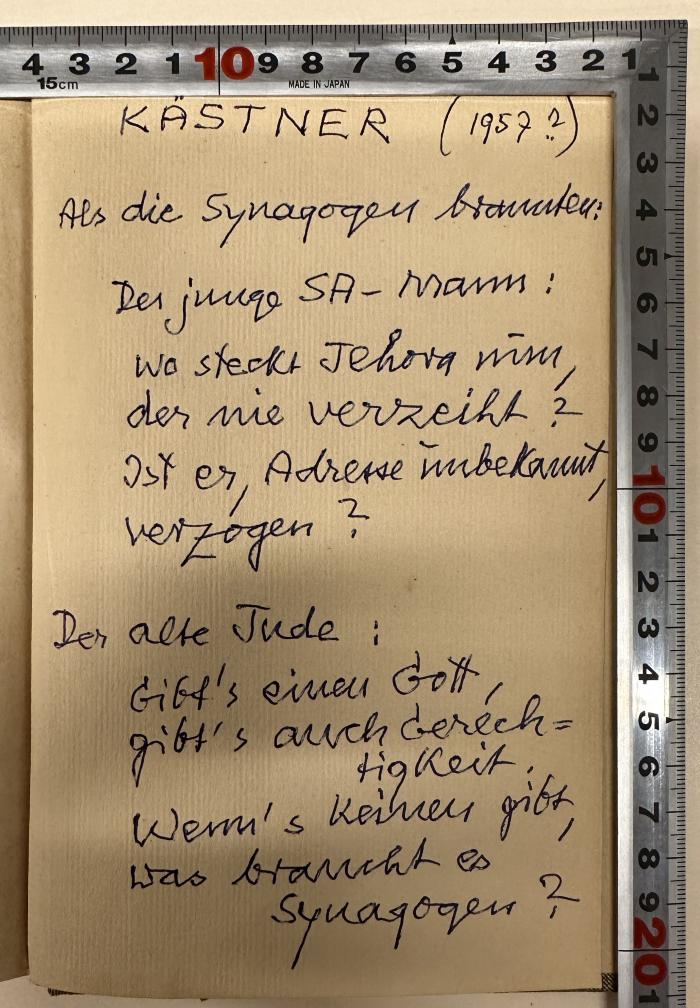 4 3 2 1 10 9 8 7 6 5 4 3 2 1
15cm MADE IN JAPAN
KÄSTNER (1957?)
Als die Synagogen brannten:
Der junge SA-Mann:
Wo steckt Jehova nun,
der nie verzeiht?
Ist er, Adresse unbekannt,
verzogen?
Der alte Jude:
Gibt's einen Gott,
gibt's auch Gerech=
tigkeit.
Wenn's keinen gibt,
was braucht es
Synagogen?
1 2 3 4 5 6 7 8 9 10 1 2 3 4 5 6 7 8 9 20 1